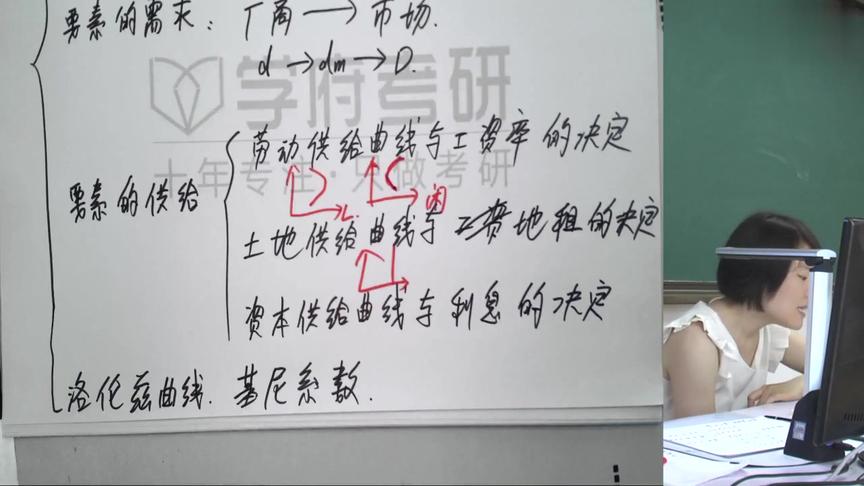 要素的需求：厂商→市场.
d→dm→D.
学府考研
劳动供给曲线与工资率的决定
十年专注·只做考研
要素的供给
L
闲
土地供给曲线与地租的决定
资本供给曲线与利息的决定
洛伦兹曲线.基尼系数.